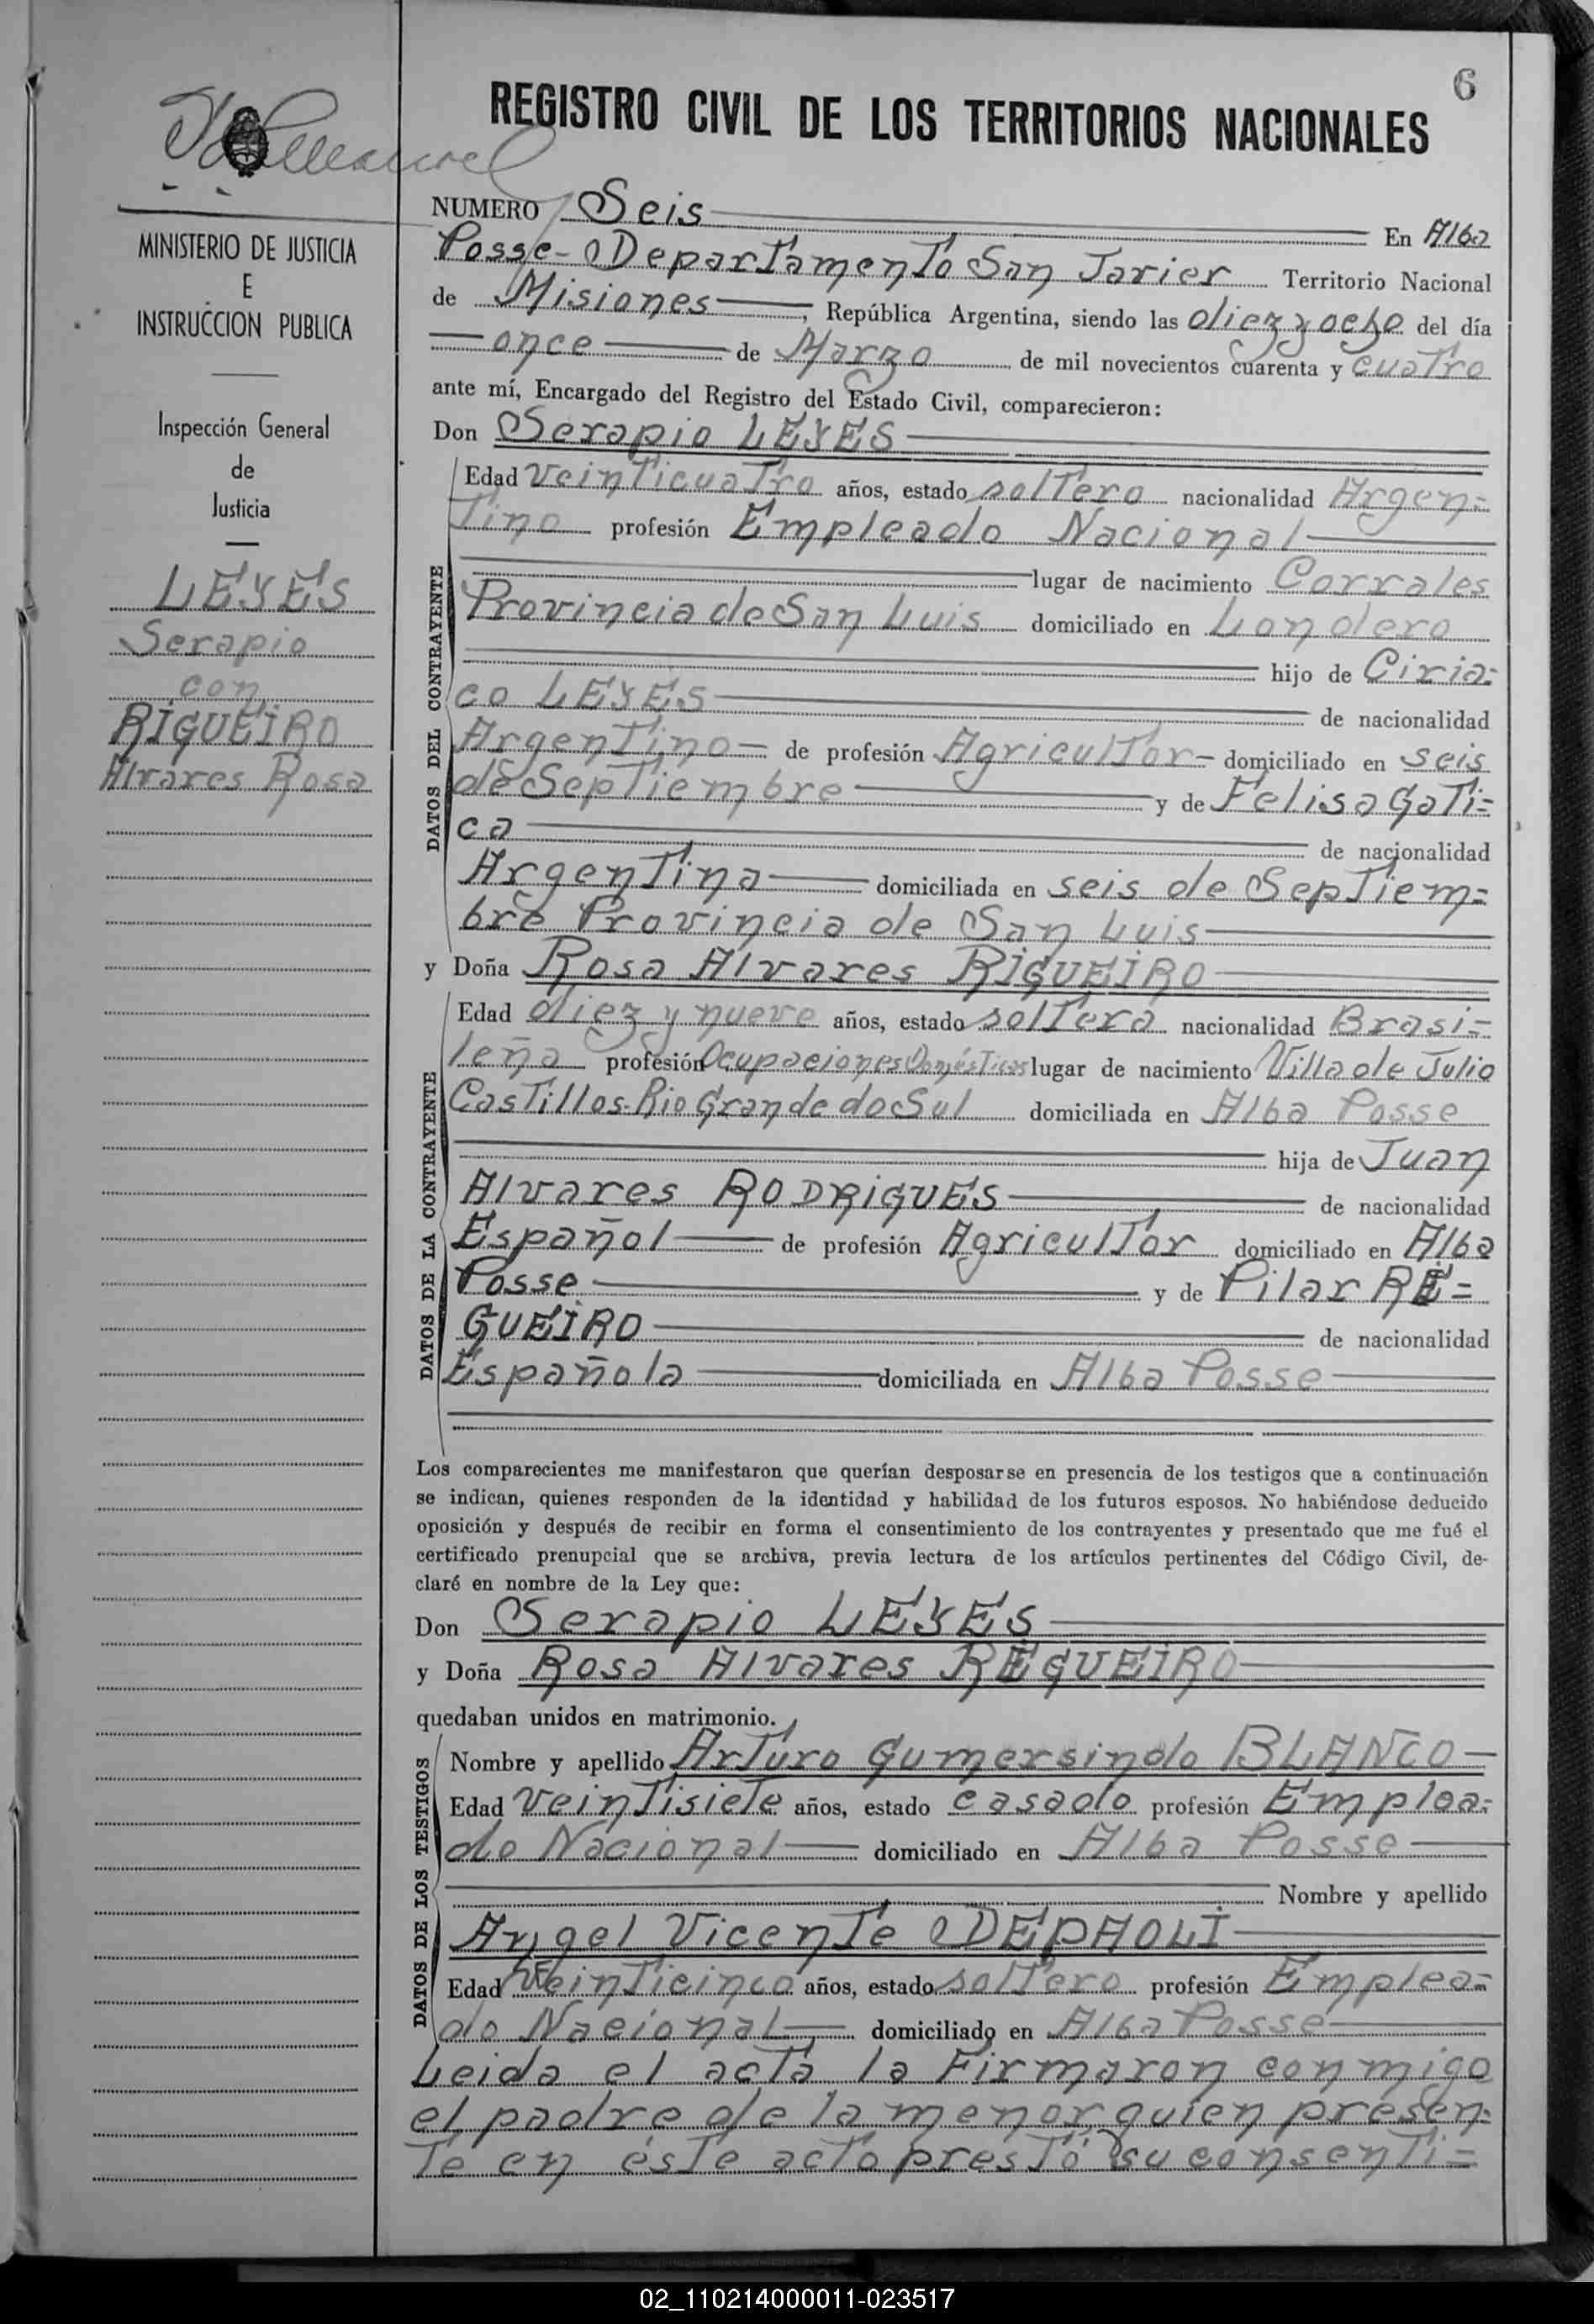 6
REGISTRO CIVIL DE LOS TERRITORIOS NACIONALES
MINISTERIO DE JUSTICIA
E
INSTRUCCION PUBLICA
Inspección General
de
Justicia
LEYES
Serapio
con
RIGUEIRO
Alvares Rosa
NUMERO Seis
En Alba
Posse - Departamento San Javier Territorio Nacional
de Misiones, República Argentina, siendo las diez y ocho del día
once de Marzo de mil novecientos cuarenta y cuatro
ante mí, Encargado del Registro del Estado Civil, comparecieron:
Don Serapio LEYES
DATOS DEL CONTRAYENTE
Edad veinticuatro años, estado soltero nacionalidad Argen=
tino profesión Empleado Nacional
lugar de nacimiento Corrales
Provincia de San Luis domiciliado en Londero
hijo de Ciria=
co LEYES
de nacionalidad
Argentino de profesión Agricultor domiciliado en seis
de Septiembre y de Felisa Gati=
ca
de nacionalidad
Argentina domiciliada en seis de Septiem=
bre Provincia de San Luis
y Doña Rosa Alvares RIGUEIRO
DATOS DE LA CONTRAYENTE
Edad diez y nueve años, estado soltera nacionalidad Brasi=
leña profesión Ocupaciones Domésticas lugar de nacimiento Villa de Julio
Castillos-Rio Grande do Sul domiciliada en Alba Posse
hija de Juan
Alvares RODRIGUES de nacionalidad
Español de profesión Agricultor domiciliado en Alba
Posse y de Pilar RE=
GUEIRO de nacionalidad
Española domiciliada en Alba Posse
Los comparecientes me manifestaron que querían desposarse en presencia de los testigos que a continuación
se indican, quienes responden de la identidad y habilidad de los futuros esposos. No habiéndose deducido
oposición y después de recibir en forma el consentimiento de los contrayentes y presentado que me fué el
certificado prenupcial que se archiva, previa lectura de los artículos pertinentes del Código Civil, de-
claré en nombre de la Ley que:
Don Serapio LEYES
y Doña Rosa Alvares REGUEIRO
quedaban unidos en matrimonio.
DATOS DE LOS TESTIGOS
Nombre y apellido Arturo Gumersindo BLANCO
Edad veintisiete años, estado casado profesión Emplea=
do Nacional domiciliado en Alba Posse
Nombre y apellido
Angel Vicente DEPAOLI
Edad Veinticinco años, estado soltero profesión Emplea=
do Nacional domiciliado en Alba Posse
Leida el acta la Firmaron conmigo
el padre de la menor, quien presen=
te en éste acto prestó su consenti=
02_110214000011-023517